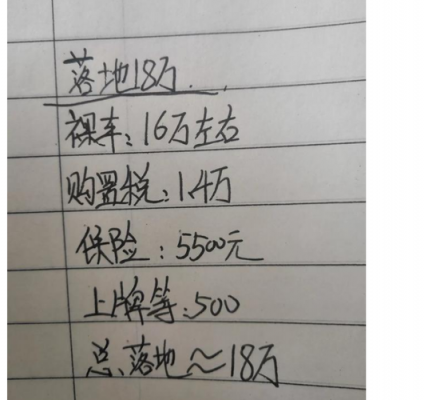 落地18万..
裸车:16万左右
购置税:1.4万
保险:5500元
上牌等:500
总落地≈18万